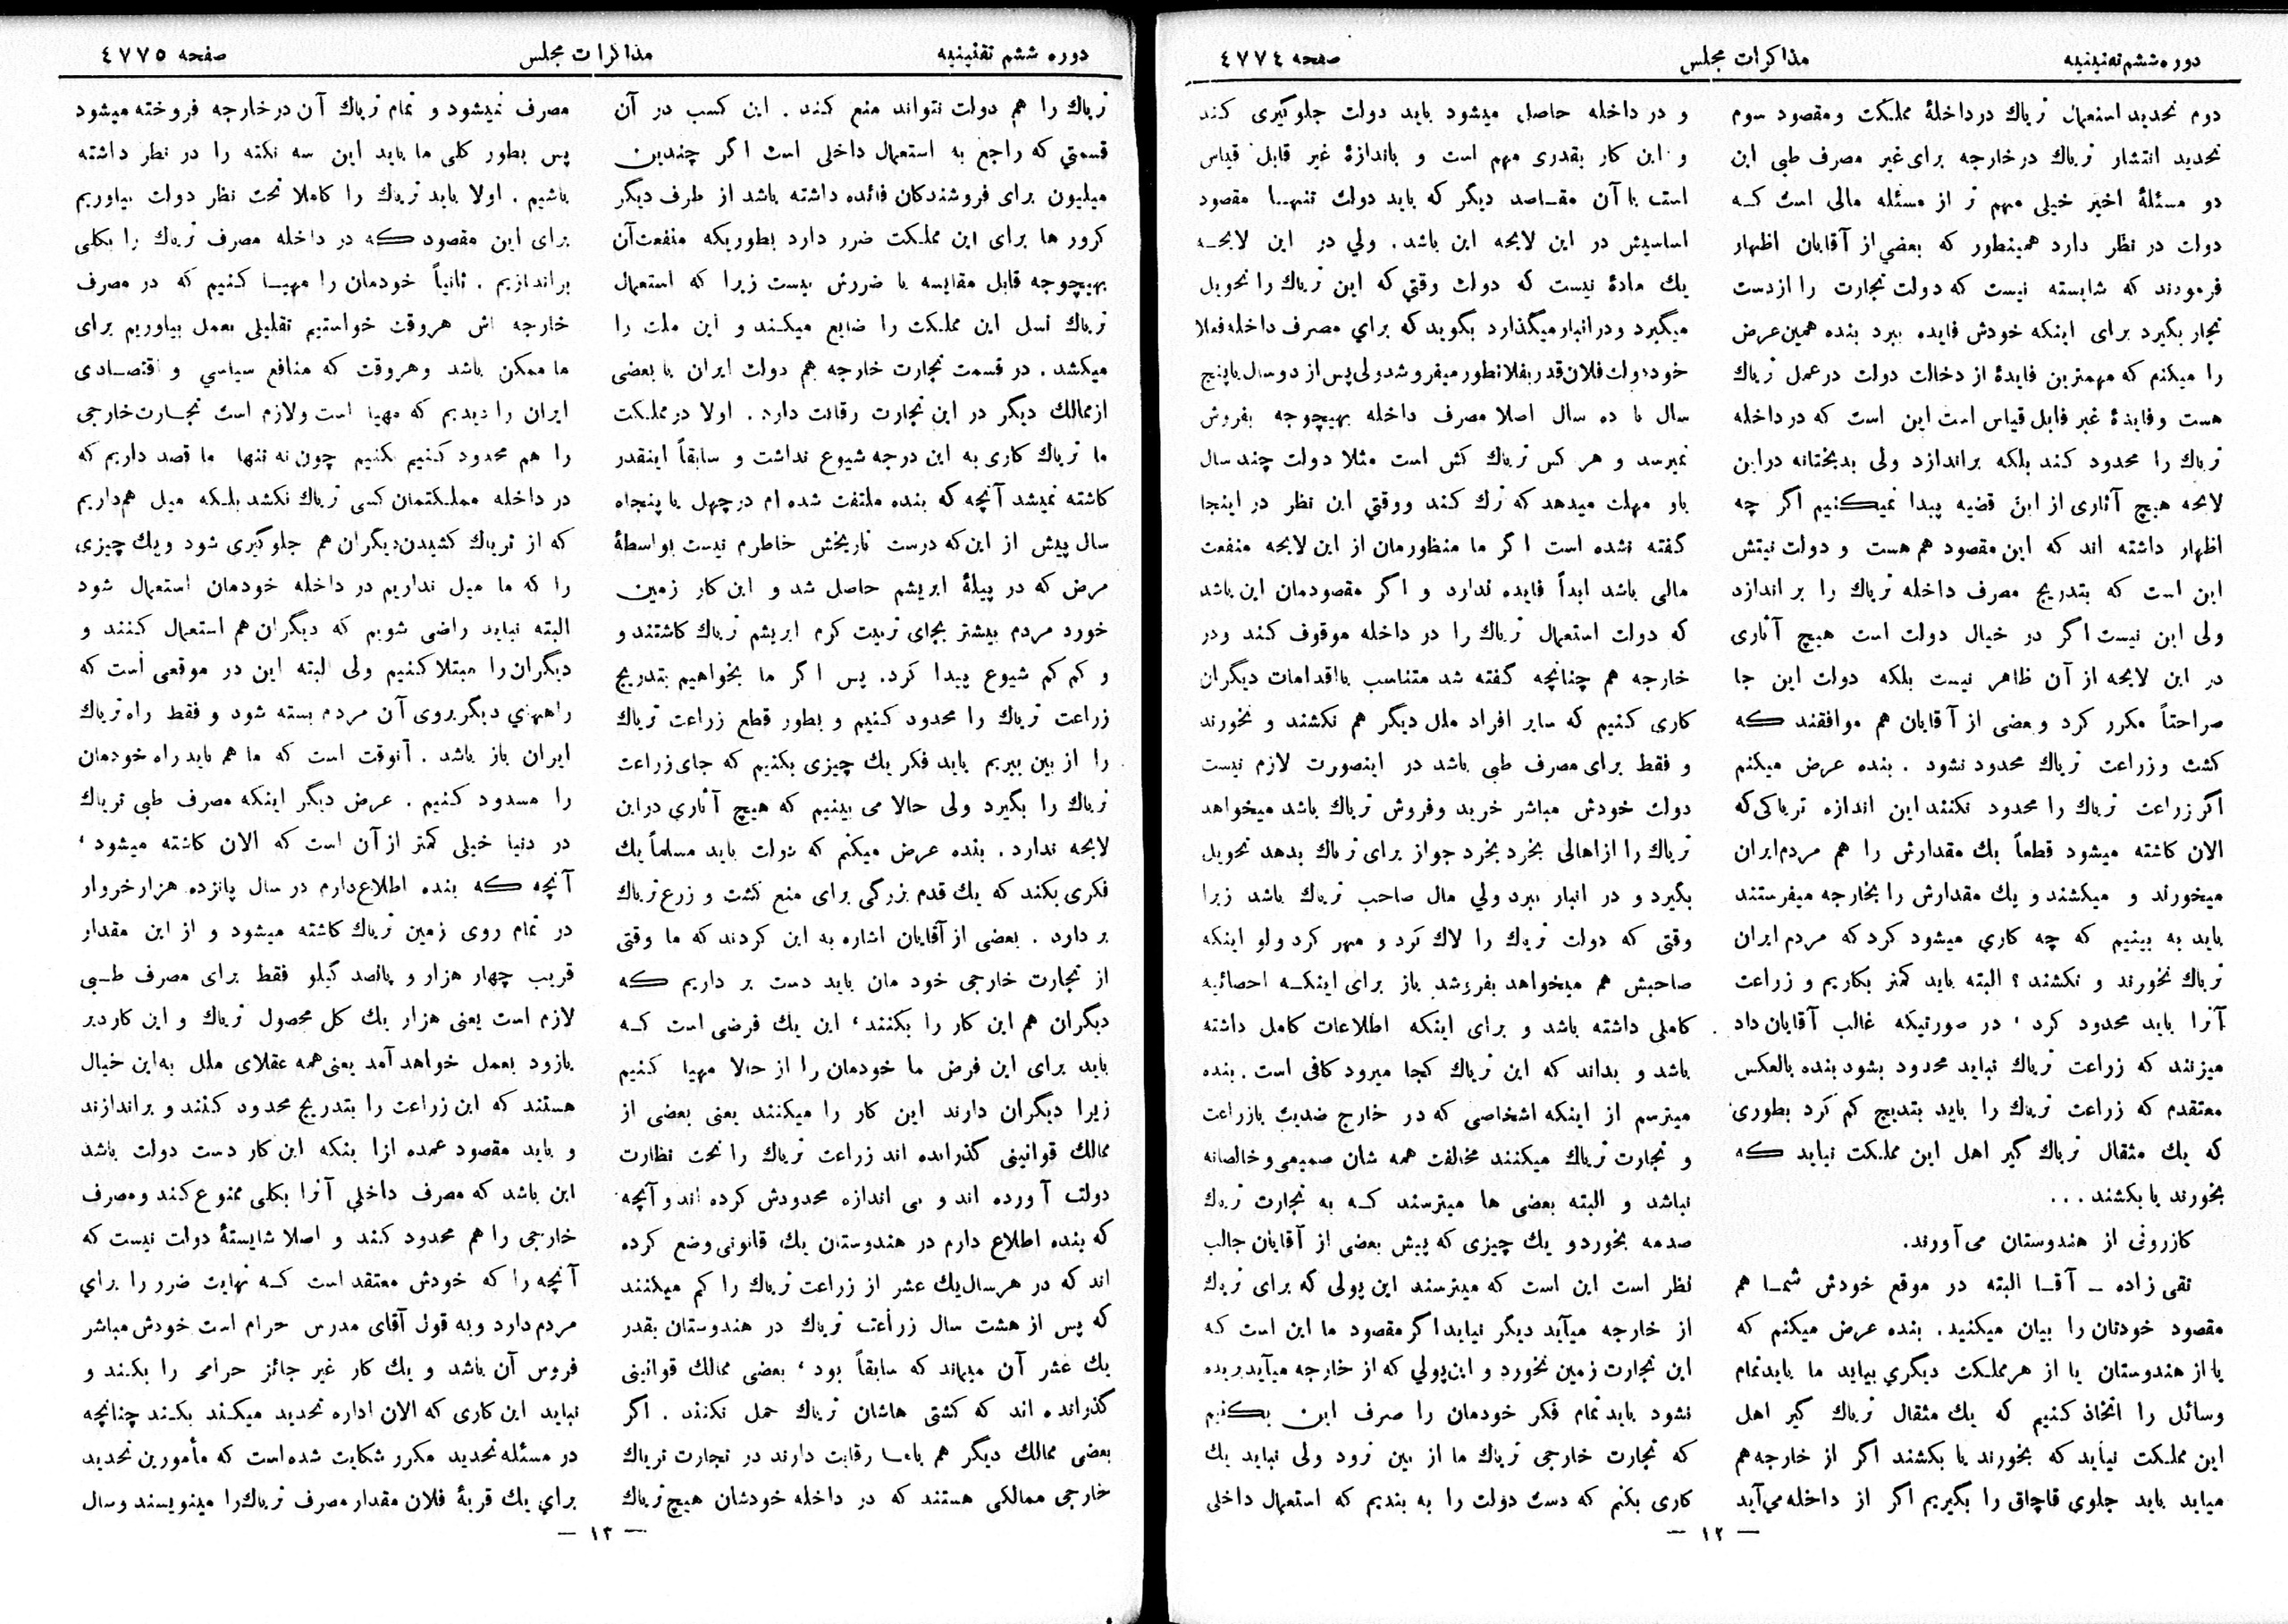 دوره ششم تقنینیه
مذاکرات مجلس
صفحه ٤٧٧٤
دوم تحدید استعمال تریاك درداخلهٔ مملکت ومقصود سوم
تحدید انتشار تریاك درخارجه برای غیر مصرف طبی این
دو مسئلهٔ اخیر خیلی مهم تر از مسئله مالی است کـه
دولت در نظر دارد همینطور که بعضي از آقایان اظهار
فرمودند که شایسته نیست که دولت تجارت را ازدست
تجار بگیرد برای اینکه خودش فایده ببرد بنده همین عرض
را میکنم که مهمترین فایدهٔ از دخالت دولت درعمل تریاك
هست وفایدهٔ غیر قابل قیاس است این است که در داخله
تریاك را محدود کند بلکه براندازد ولی بدبختانه دراین
لایحه هیچ آثاری از این قضیه پیدا نمیکنیم اگر چه
اظهار داشته اند که این مقصود هم هست و دولت نیتش
این است که بتدریج مصرف داخله تریاك را بر اندازد
ولی این نیست اگر در خیال دولت است هیچ آثاری
در این لایحه از آن ظاهر نیست بلکه دولت این جا
صراحتاً مکرر کرد وبعضی از آقایان هم موافقند که
کشت وزراعت تریاك محدود نشود . بنده عرض میکنم
اگر زراعت تریاك را محدود نکنند این اندازه تریاکی که
الان کاشته میشود قطعاً یك مقدارش را هم مردم ایران
میخورند و میکشند و یك مقدارش را بخارجه میفرستند
باید به بینیم که چه کاري میشود کرد که مردم ایران
تریاك نخورند و نکشند ؟ البته باید کمتر بکاریم و زراعت
آنرا باید محدود کرد ، در صورتیکه غالب آقایان داد
میزنند که زراعت تریاك نباید محدود بشود بنده بالعکس
معتقدم که زراعت تریاك را باید بتدریج کم کرد بطوری
که یك مثقال تریاك گیر اهل این مملکت نیاید که
بخورند یا بکشند ...
کازرونی از هندوستان می آورند.
تقی زاده ـ آقـا البته در موقع خودش شمـا هم
مقصود خودتان را بیان میکنید. بنده عرض میکنم که
یا از هندوستان یا از هر مملکت دیگري بیاید ما باید تمام
وسائل را اتخاذ کنیم که یك مثقال تریاك گیر اهل
این مملکت نیاید که بخورند یا بکشند اگر از خارجه هم
میاید باید جلوی قاچاق را بگیریم اگر از داخله می آید
و در داخله حاصل میشود باید دولت جلوگیری کند
و این کار بقدری مهم است و باندازهٔ غیر قابل قیاس
است با آن مقـاصد دیگر که باید دولت تنهـا مقصود
اساسیش در این لایحه این باشد. ولي در این لایحـه
یك مادهٔ نیست که دولت وقتي که این تریاك را تحویل
میگیرد ودر انبار میگذارد بگوید که براي مصرف داخله فعلا
خود دولت فلان قدر بفلانطور میفروشد ولی پس از دو سال یا پنج
سال تا ده سال اصلا مصرف داخله بهیچوجه بفروش
نمیرسد و هر کس تریاك کش است مثلا دولت چند سال
باو مهلت میدهد که ترك کند ووقتي این نظر در اینجا
گفته نشده است اگر ما منظورمان از این لایحه منفعت
مالی باشد ابداً فایده ندارد و اگر مقصودمان این باشد
که دولت استعمال تریاك را در داخله موقوف کند ودر
خارجه هم چنانچه گفته شد متناسب با اقدامات دیگران
کاری کنیم که سایر افراد ملل دیگر هم نکشند و نخورند
و فقط برای مصرف طبی باشد در اینصورت لازم نیست
دولت خودش مباشر خرید وفروش تریاك باشد میخواهد
تریاك را ازاهالی بخرد بخرد جواز برای تریاك بدهد تحویل
بگیرد و در انبار ببرد ولي مال صاحب تریاك باشد زیرا
وقتی که دولت تریاك را لاك کرد و مهر کرد ولو اینکه
صاحبش هم میخواهد بفروشد باز برای اینکـه احصائیه
کاملی داشته باشد و برای اینکه اطلاعات کامل داشته
باشد و بداند که این تریاك کجا میرود کافی است . بنده
میترسم از اینکه اشخاصی که در خارج ضدیت بازراعت
و تجارت تریاك میکنند مخالفت همه شان صمیمی و خالصانه
نباشد و البته بعضی ها میترسند کـه به تجارت تریاك
صدمه بخورد و یك چیزی که پیش بعضی از آقایان جالب
نظر است این است که میترسند این پولی که برای تریاك
از خارجه میآید دیگر نیاید اگر مقصود ما این است که
این تجارت زمین نخورد و این پولي که از خارجه میآید بریده
نشود باید تمام فکر خودمان را صرف این بکنیم
که تجارت خارجی تریاك ما از بین نرود ولی نباید یك
کاری بکنم که دست دولت را به بندیم که استعمال داخلی
— ١٢ —
دوره ششم تقنینیه
مذاکرات مجلس
صفحه ٤٧٧٥
تریاك را هم دولت نتواند منع کند . این کسب در آن
قسمتي که راجع به استعمال داخلی است اگر چندین
میلیون برای فروشندکان فائده داشته باشد از طرف دیگر
کرور ها برای این مملکت ضرر دارد بطوریکه منفعت آن
بهیچوجه قابل مقایسه با ضررش نیست زیرا که استعمال
تریاك نسل این مملکت را ضایع میکند و این ملت را
میکشد . در قسمت تجارت خارجه هم دولت ایران با بعضی
ازممالك دیگر در این تجارت رقابت دارد . اولا در مملکت
ما تریاك کاری به این درجه شیوع نداشت و سابقاً اینقدر
کاشته نمیشد آنچه که بنده ملتفت شده ام درچهل یا پنجاه
سال پیش از این که درست تاریخش خاطرم نیست بواسطهٔ
مرض که در پیلهٔ ابریشم حاصل شد و این کار زمین
خورد مردم بیشتر بجای تربیت کرم ابریشم تریاك کاشتند و
و کم کم شیوع پیدا کرد. پس اگر ما بخواهیم بتدریج
زراعت تریاك را محدود کنیم و بطور قطع زراعت تریاك
را از بین ببریم باید فکر یك چیزی بکنیم که جای زراعت
تریاك را بگیرد ولی حالا می بینیم که هیچ آثاري دراین
لایحه ندارد . بنده عرض میکنم که دولت باید مسلماً یك
فکری بکند که یك قدم بزرگی برای منع کشت و زرع تریاك
بر دارد . بعضی از آقایان اشاره به این کردند که ما وقتی
از تجارت خارجی خود مان باید دست بر داریم که
دیگران هم این کار را بکنند ، این یك فرضی است کـه
باید برای این فرض ما خودمان را از حالا مهیا کنیم
زیرا دیگران دارند این کار را میکنند یعنی بعضی از
ممالك قوانینی گذرانده اند زراعت تریاك را تحت نظارت
دولت آورده اند و بی اندازه محدودش کرده اند و آنچه
که بنده اطلاع دارم در هندوستان یك قانونی وضع کرده
اند که در هرسال یك عشر از زراعت تریاك را کم میکنند
که پس از هشت سال زراعت تریاك در هندوستان بقدر
یك عشر آن میماند که سابقاً بود ، بعضی ممالك قوانینی
گذرانده اند که کشتی هاشان تریاك حمل نکنند . اگر
بعضی ممالك دیگر هم بامـا رقابت دارند در تجارت تریاك
خارجی ممالکی هستند که در داخله خودشان هیچ تریاك
مصرف نمیشود و تمام تریاك آن درخارجه فروخته میشود
پس بطور کلی ما باید این سه نکته را در نظر داشته
باشیم . اولا باید تریاك را کاملا تحت نظر دولت بیاوریم
برای این مقصود که در داخله مصرف تریاك را بکلی
براندازیم . ثانیاً خودمان را مهیـا کنیم که در مصرف
خارجه اش هروقت خواستیم تقلیلی بعمل بیاوریم برای
ما ممکن باشد وهروقت که منافع سیاسي و اقتصـادی
ایران را دیدیم که مهیا است ولازم است تجـارت خارجی
را هم محدود کنیم بکنیم چون نه تنها ما قصد داریم که
در داخله مملکتمان کسی تریاك نکشد بلکه میل هم داریم
که از تریاك کشیدن دیگران هم جلوگیری شود ویك چیزی
را که ما میل نداریم در داخله خودمان استعمال شود
البته نباید راضی شویم که دیگران هم استعمال کنند و
دیگران را مبتلا کنیم ولی البته این در موقعی است که
راههاي دیگر بروی آن مردم بسته شود و فقط راه تریاك
ایران باز باشد . آنوقت است که ما هم باید راه خودمان
را مسدود کنیم . عرض دیگر اینکه مصرف طبی تریاك
در دنیا خیلی کمتر از آن است که الان کاشته میشود ،
آنچه که بنده اطلاع دارم در سال پانزده هزار خروار
در تمام روی زمین تریاك کاشته میشود و از این مقدار
قریب چهار هزار و پانصد کیلو فقط برای مصرف طـبی
لازم است یعنی هزار یك کل محصول تریاك و این کار دیر
یازود بعمل خواهد آمد یعنی همه عقلای ملل به این خیال
هستند که این زراعت را بتدریج محدود کنند و براندازند
و باید مقصود عمده ازا ینکه این کار دست دولت باشد
این باشد که مصرف داخلي آنرا بکلی ممنوع کند ومصرف
خارجی را هم محدود کند و اصلا شایستهٔ دولت نیست که
آنچه را که خودش معتقد است کـه نهایت ضرر را براي
مردم دارد وبه قول آقای مدرس حرام است خودش مباشر
فروس آن باشد و یك کار غیر جائز حرامی را بکند و
نباید این کاری که الان اداره تحدید میکند بکند چنانچه
در مسئله تحدید مکرر شکایت شده است که مأمورین تحدید
براي یك قریهٔ فلان مقدار مصرف تریاك را مینویسند وسال
— ١٣ —